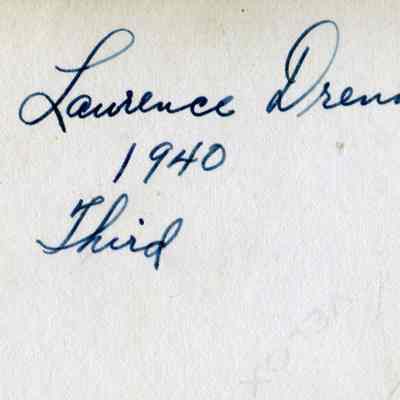 Laurence Dren
1940
Third